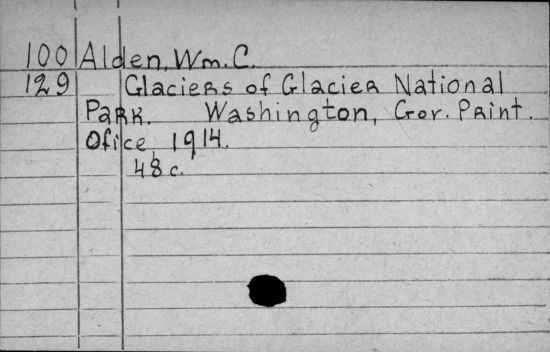 100 Alden, Wm. C.
129 Glaciers of Glacier National
Park. Washington, Gov. Print.
Ofice, 1914.
48 c.